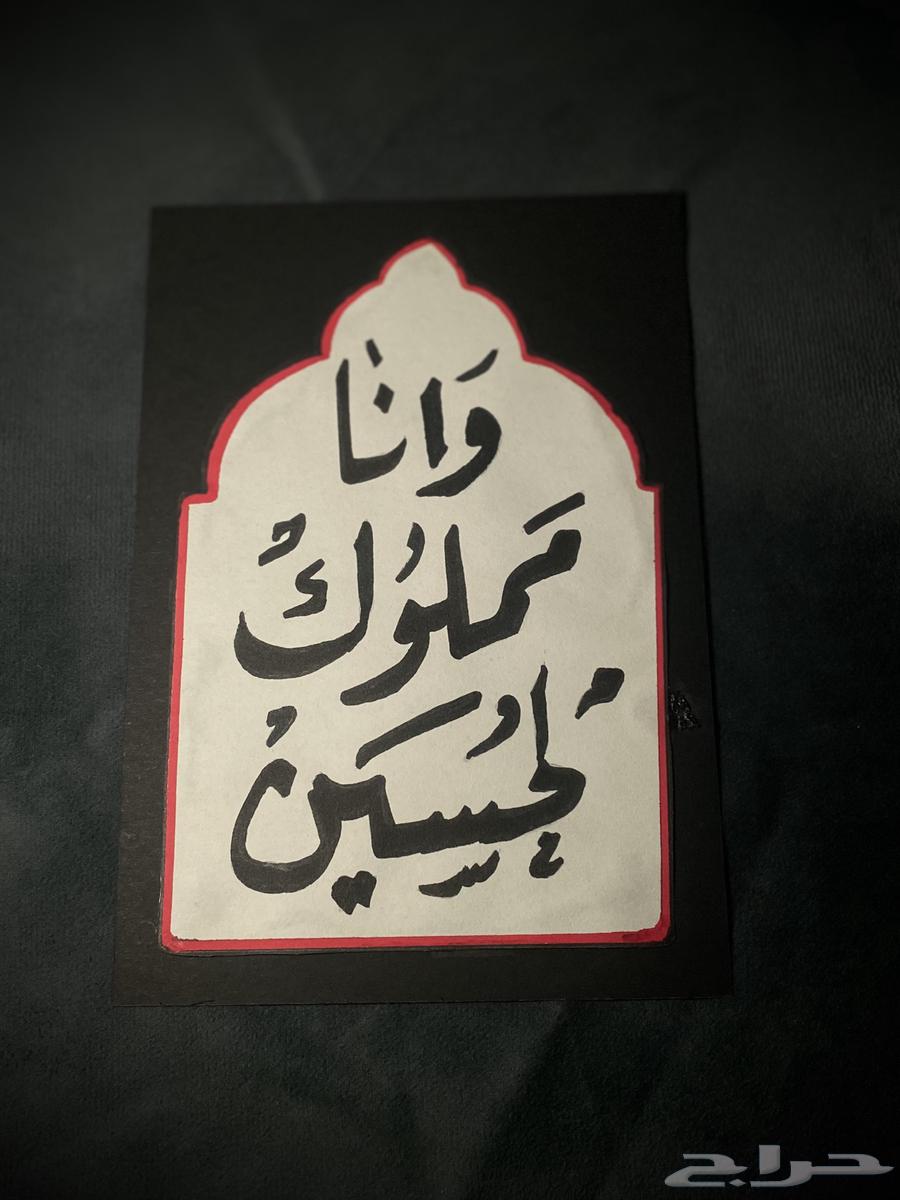 وَانَا
مَملوُكٌ
لِحُسَين
حراج